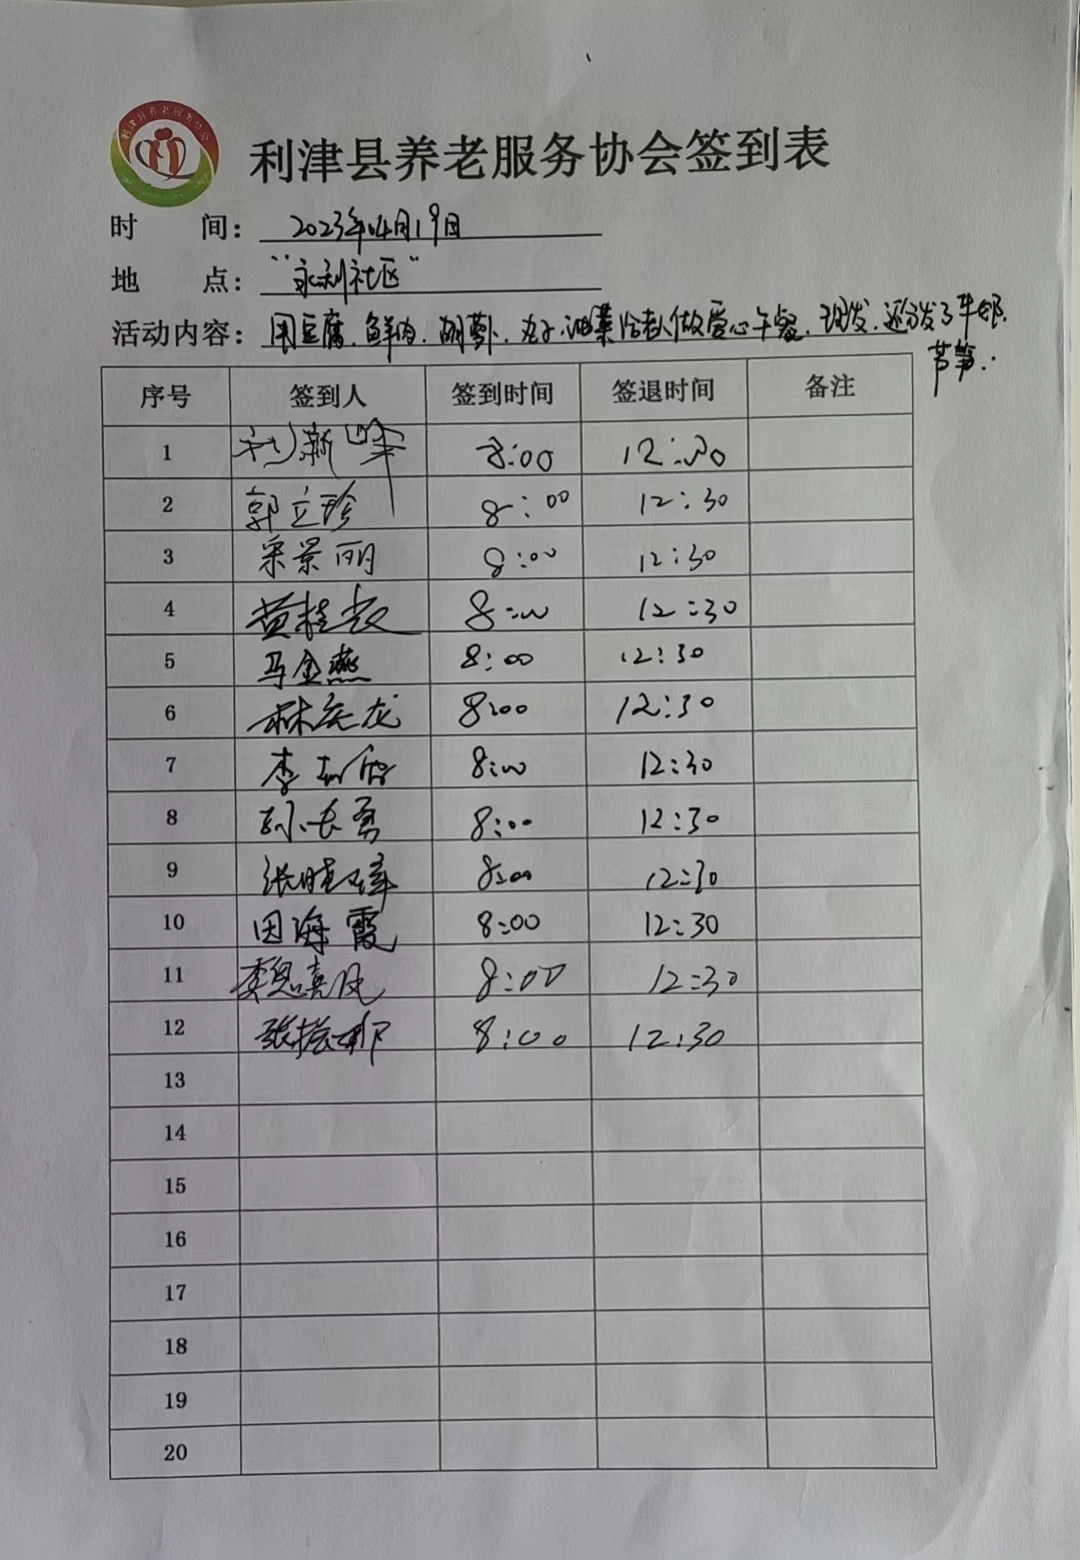 利津县养老服务协会
利津县养老服务协会签到表
时 间: 2023年04月19日
地 点: "永利社区"
活动内容: 用豆腐.鲜肉.胡萝卜.丸子.油菜给老人做爱心午餐.理发.还分发了牛奶.
芦笋.
序号 签到人 签到时间 签退时间 备注
1 新峰 8:00 12:30
2 郭立珍 8:00 12:30
3 宋景丽 8:00 12:30
4 黄桂 8:00 12:30
5 马金燕 8:00 12:30
6 林庆龙 8:00 12:30
7 李 8:00 12:30
8 孙长勇 8:00 12:30
9 张晓 8:00 12:30
10 田海霞 8:00 12:30
11 8:00 12:30
12 张 8:00 12:30
13
14
15
16
17
18
19
20